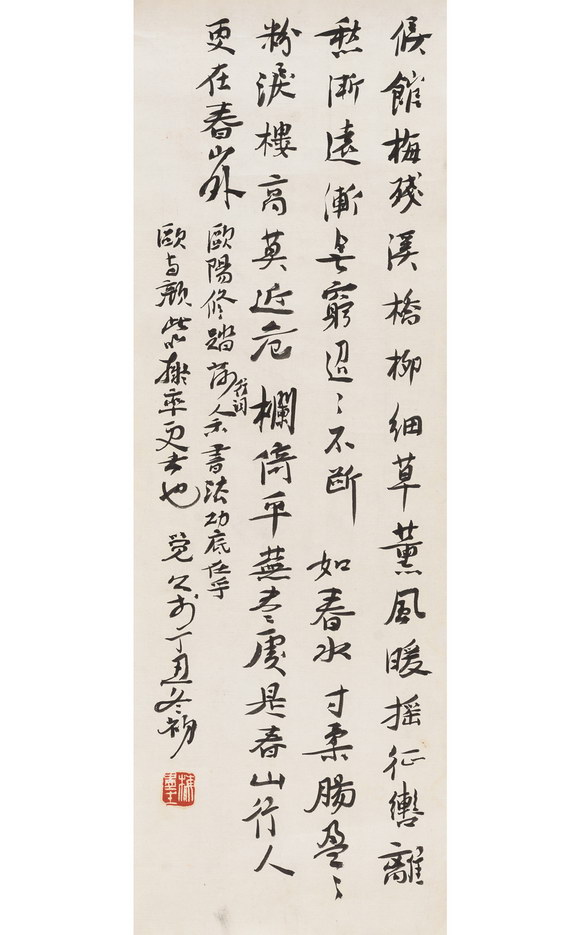 候館梅殘溪橋柳細草薰風暖搖征轡離
愁漸遠漸無窮迢〻不斷 如春水寸柔腸盈〻
粉淚樓高莫近危欄倚平蕪盡處是春山行人
更在春山外
歐陽修踏莎行詞 人示書法功底在乎
歐与顏此擬率更書也 覺公於丁丑冬初